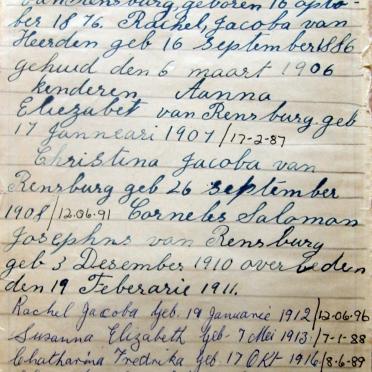 van Rensburg, geboren 16 opto-
ber 1876. Rachel, Jacoba van
Heerden geb 16 September 1886
gehuid den 6 maart 1906
kenderen Aanna
Eliezabet van Rensburg. geb
17 Janneari 1907 / 17-2-87
Christina Jacoba van
Rensburg geb 26 September
1908 / 12.06.91 Corneles Salomon
Josephns van Rensburg
geb 3 Desember 1910 overleden
den 19 Feberarie 1911.
Rachel Jacoba Geb. 19 Januarie 1912 / 12.06-96
Susanna Elizabeth geb - 7 Mei 1913. / 7-1-88
Chatharina Fredrika geb 17 Okt 1916 / 8-6-89